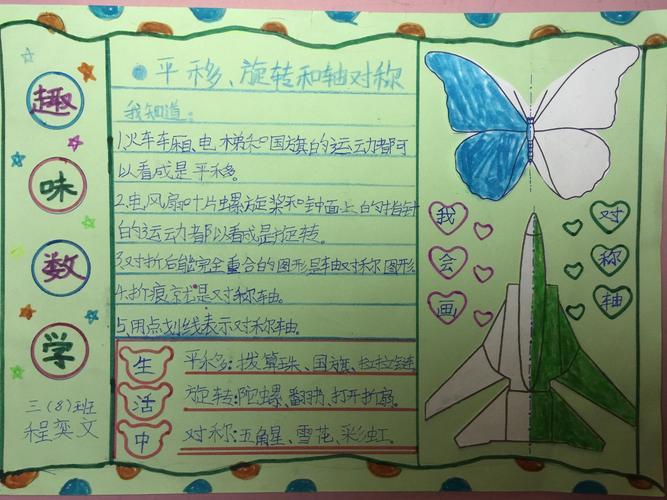 趣
味
数
学
三(8)班
程奕文
平移、旋转和轴对称
我知道:
1.火车车厢、电梯和国旗的运动都可
以看成是平移。
2.电风扇叶片螺旋桨和钟面上的指针
的运动都以看成是旋转。
3.对折后能完全重合的图形是轴对称图形
4.折痕就是对称轴。
5.用点划线表示对称轴。
生 平移:拨算珠、国旗、拉拉链
活 旋转:陀螺、翻书、打开折扇。
中 对称:五角星、雪花、彩虹。
我
会
画
对
称
轴